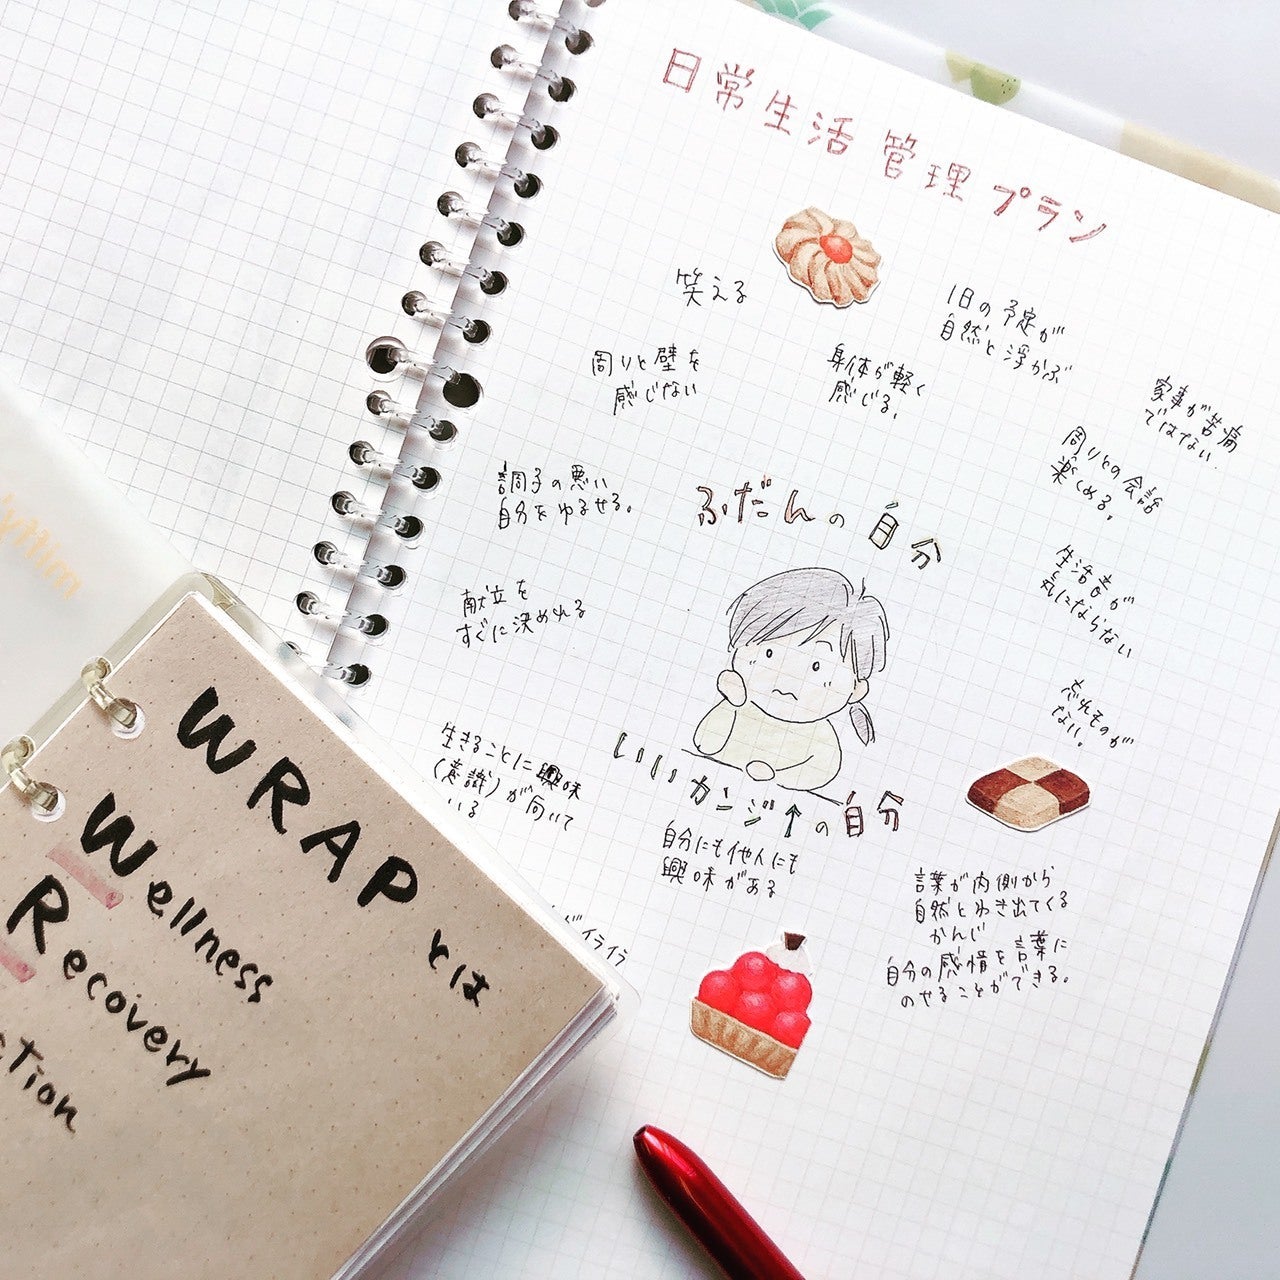 日常生活 管理 プラン
笑える
1日の予定が
自然と浮かぶ
周りと壁を
感じない
身体が軽く
感じる。
家事が苦痛
ではない.
周りとの会話
楽しめる。
調子の悪い
自分をゆるせる。
ふだんの自分
生活音が
気にならない
献立を
すぐに決めれる
忘れものが
ない。
生きることに興味
(意識)が向いて
いる
いいカンジ↑の自分
自分にも他人にも
興味がある
言葉が内側から
自然とわき出てくる
かんじ
自分の感情を言葉に
のせることができる。
イライラ
WRAPとは
Wellness
Recovery
cTion